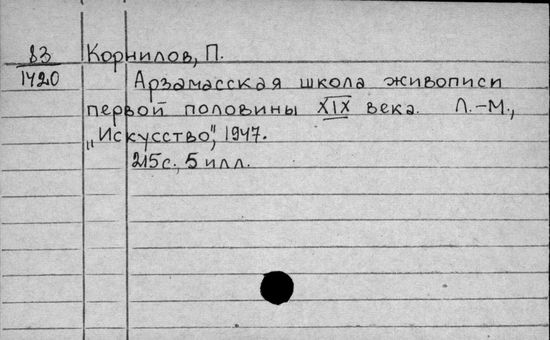 83 Корнилов, П.
1420 Арзамасская школа живописи
первой половины XIX века. Л.-М.,
„Искусство", 1947.
215с., 5 илл.